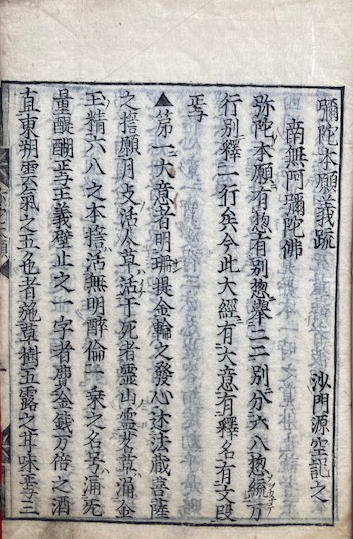 彌陀本願義疏　沙門源空記之
南無阿彌陀佛
弥陀本願有惣有別惣挙二二別分六八惣統万
行別釋一行矣今此大経有大意有釋名有文段
矣
▲第一大意者明瑞提金輪之發心述法蔵菩薩
之誓願月支活人草活干死者霊山霊艾草湧金
玉精六八之本誓活無明酔倫一乗之名号湧死
量醍醐 登止之一字者費金銭万倍之酒
直東朔雲氣之五色者施草樹五露之甘味